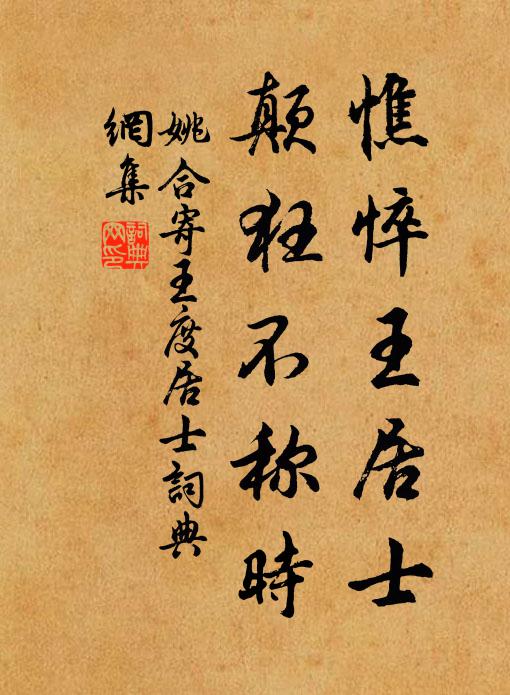 憔悴王居士
顛狂不称時
姚合寄王度居士詞典
網集
詞典
网印